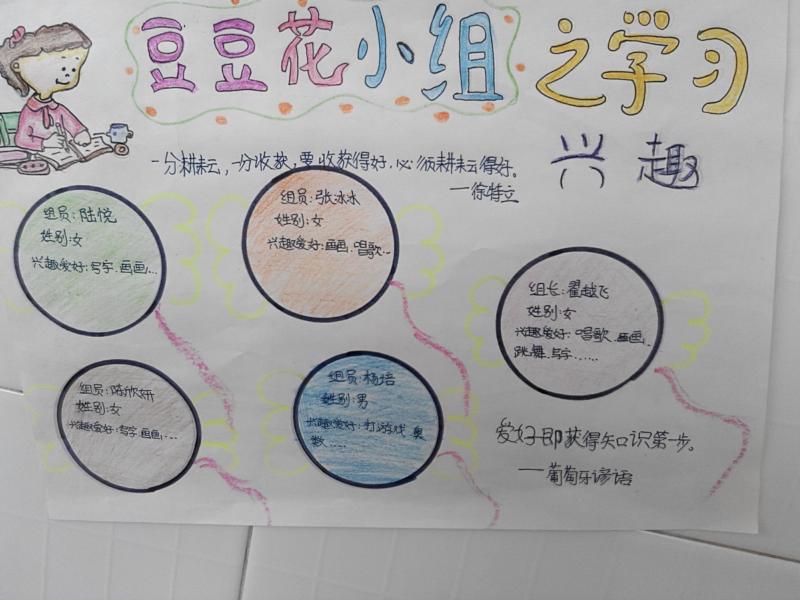 豆豆花小组之学习
兴趣
一分耕耘,一分收获,要收获得好,必须耕耘得好。
——徐特立
组员:陆悦
姓别:女
兴趣爱好:写字.画画...
组员:张冰冰
姓别:女
兴趣爱好:画画.唱歌...
组长:翟越飞
姓别:女
兴趣爱好:唱歌.画画..
跳舞.写字......
组员:陈欣妍
姓别:女
兴趣爱好:写字.画画....
组员:杨培
姓别:男
兴趣爱好:打游戏 奥
数......
爱好即获得知识第一步。
——葡萄牙谚语